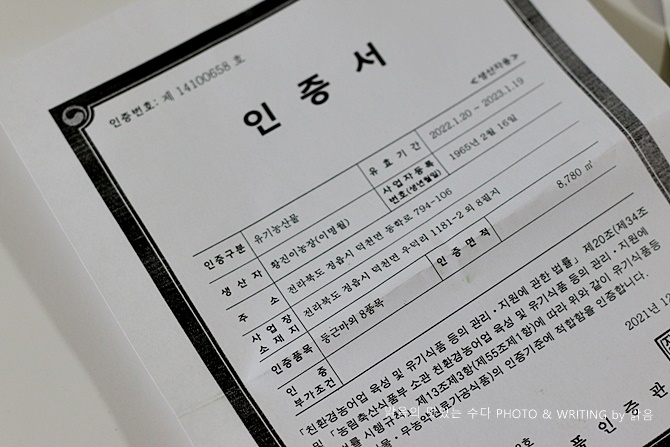 인증번호: 제 14100658 호
인 증 서
<생산자용>
인증구분 유기농산물 유 효 기 간 2022.1.20 ~ 2023.1.19
생 산 자 황진이농장(이명월) 사업자등록 번호(생년월일) 1965년 2월 16일
주 소 전라북도 정읍시 덕천면 동학로 794-106
사 업 장 소 재 지 전라북도 정읍시 덕천면 우덕리 1181-2 외 8필지
인증품목 둥근마외 8품목 인 증 면 적 8,780 ㎡
인 증 부가조건
「친환경농어업 육성 및 유기식품 등의 관리ㆍ지원에 관한 법률」 제20조(제34조
및 「농림축산식품부 소관 친환경농어업 육성 및 유기식품 등의 관리ㆍ지원에
법률 시행규칙」 제13조제3항(제55조제1항)에 따라 위와 같이 유기식품등
물ㆍ무농약원료가공식품)의 인증기준에 적합함을 인증합니다.
2021년
인 증 관
수다 PHOTO & WRITING by 맑음